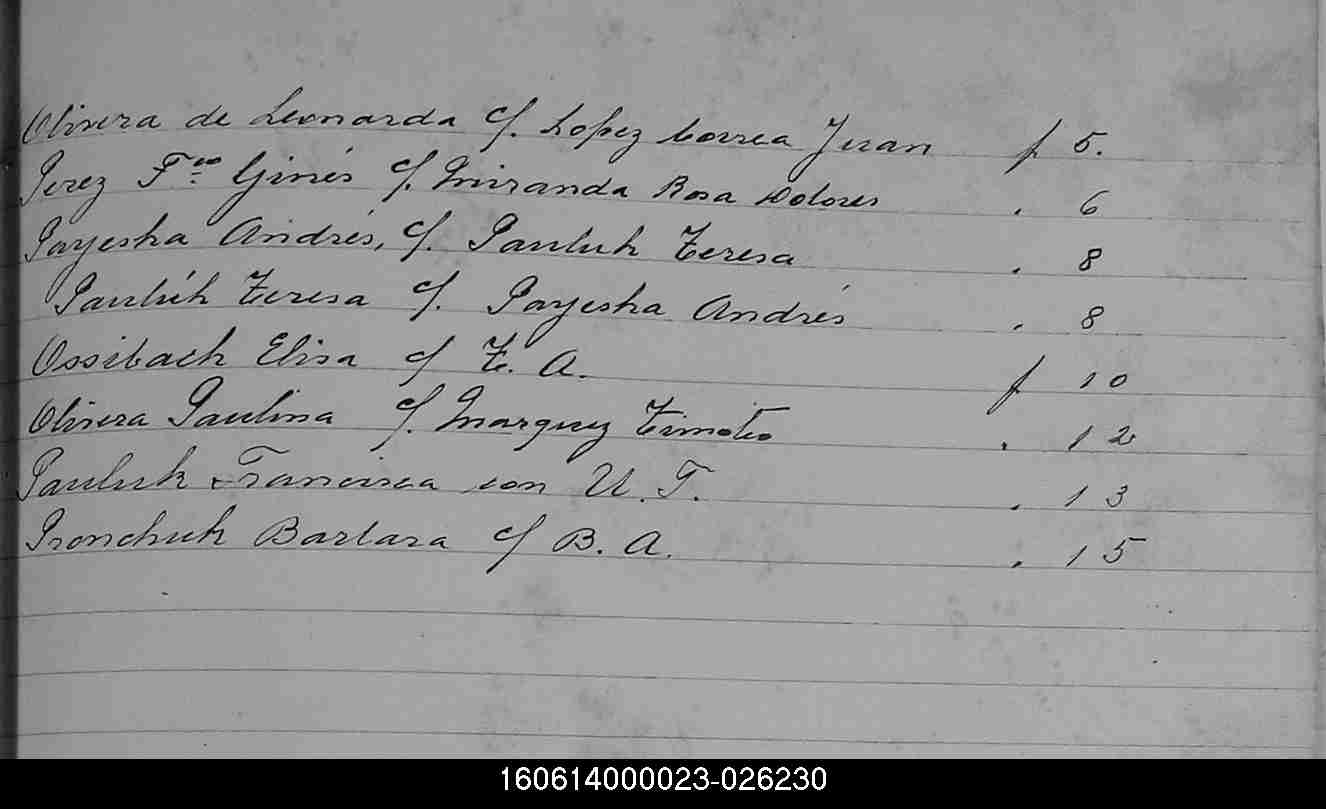 Olivera de Leonarda c/. Lopez Correa Juan f 5.
Perez Fco Ginés c/. Miranda Rosa Dolores . 6
Payeska Andrés, c/. Pauluk Teresa . 8
Paulúk Teresa c/. Payeska Andrés . 8
Ossibach Elisa c/ T. A. f 10
Olivera Paulina c/. Marquez Timoteo . 12
Pauluk Francisca con U. T. . 13
Pronchuk Barbara c/ B. A. . 15
160614000023-026230